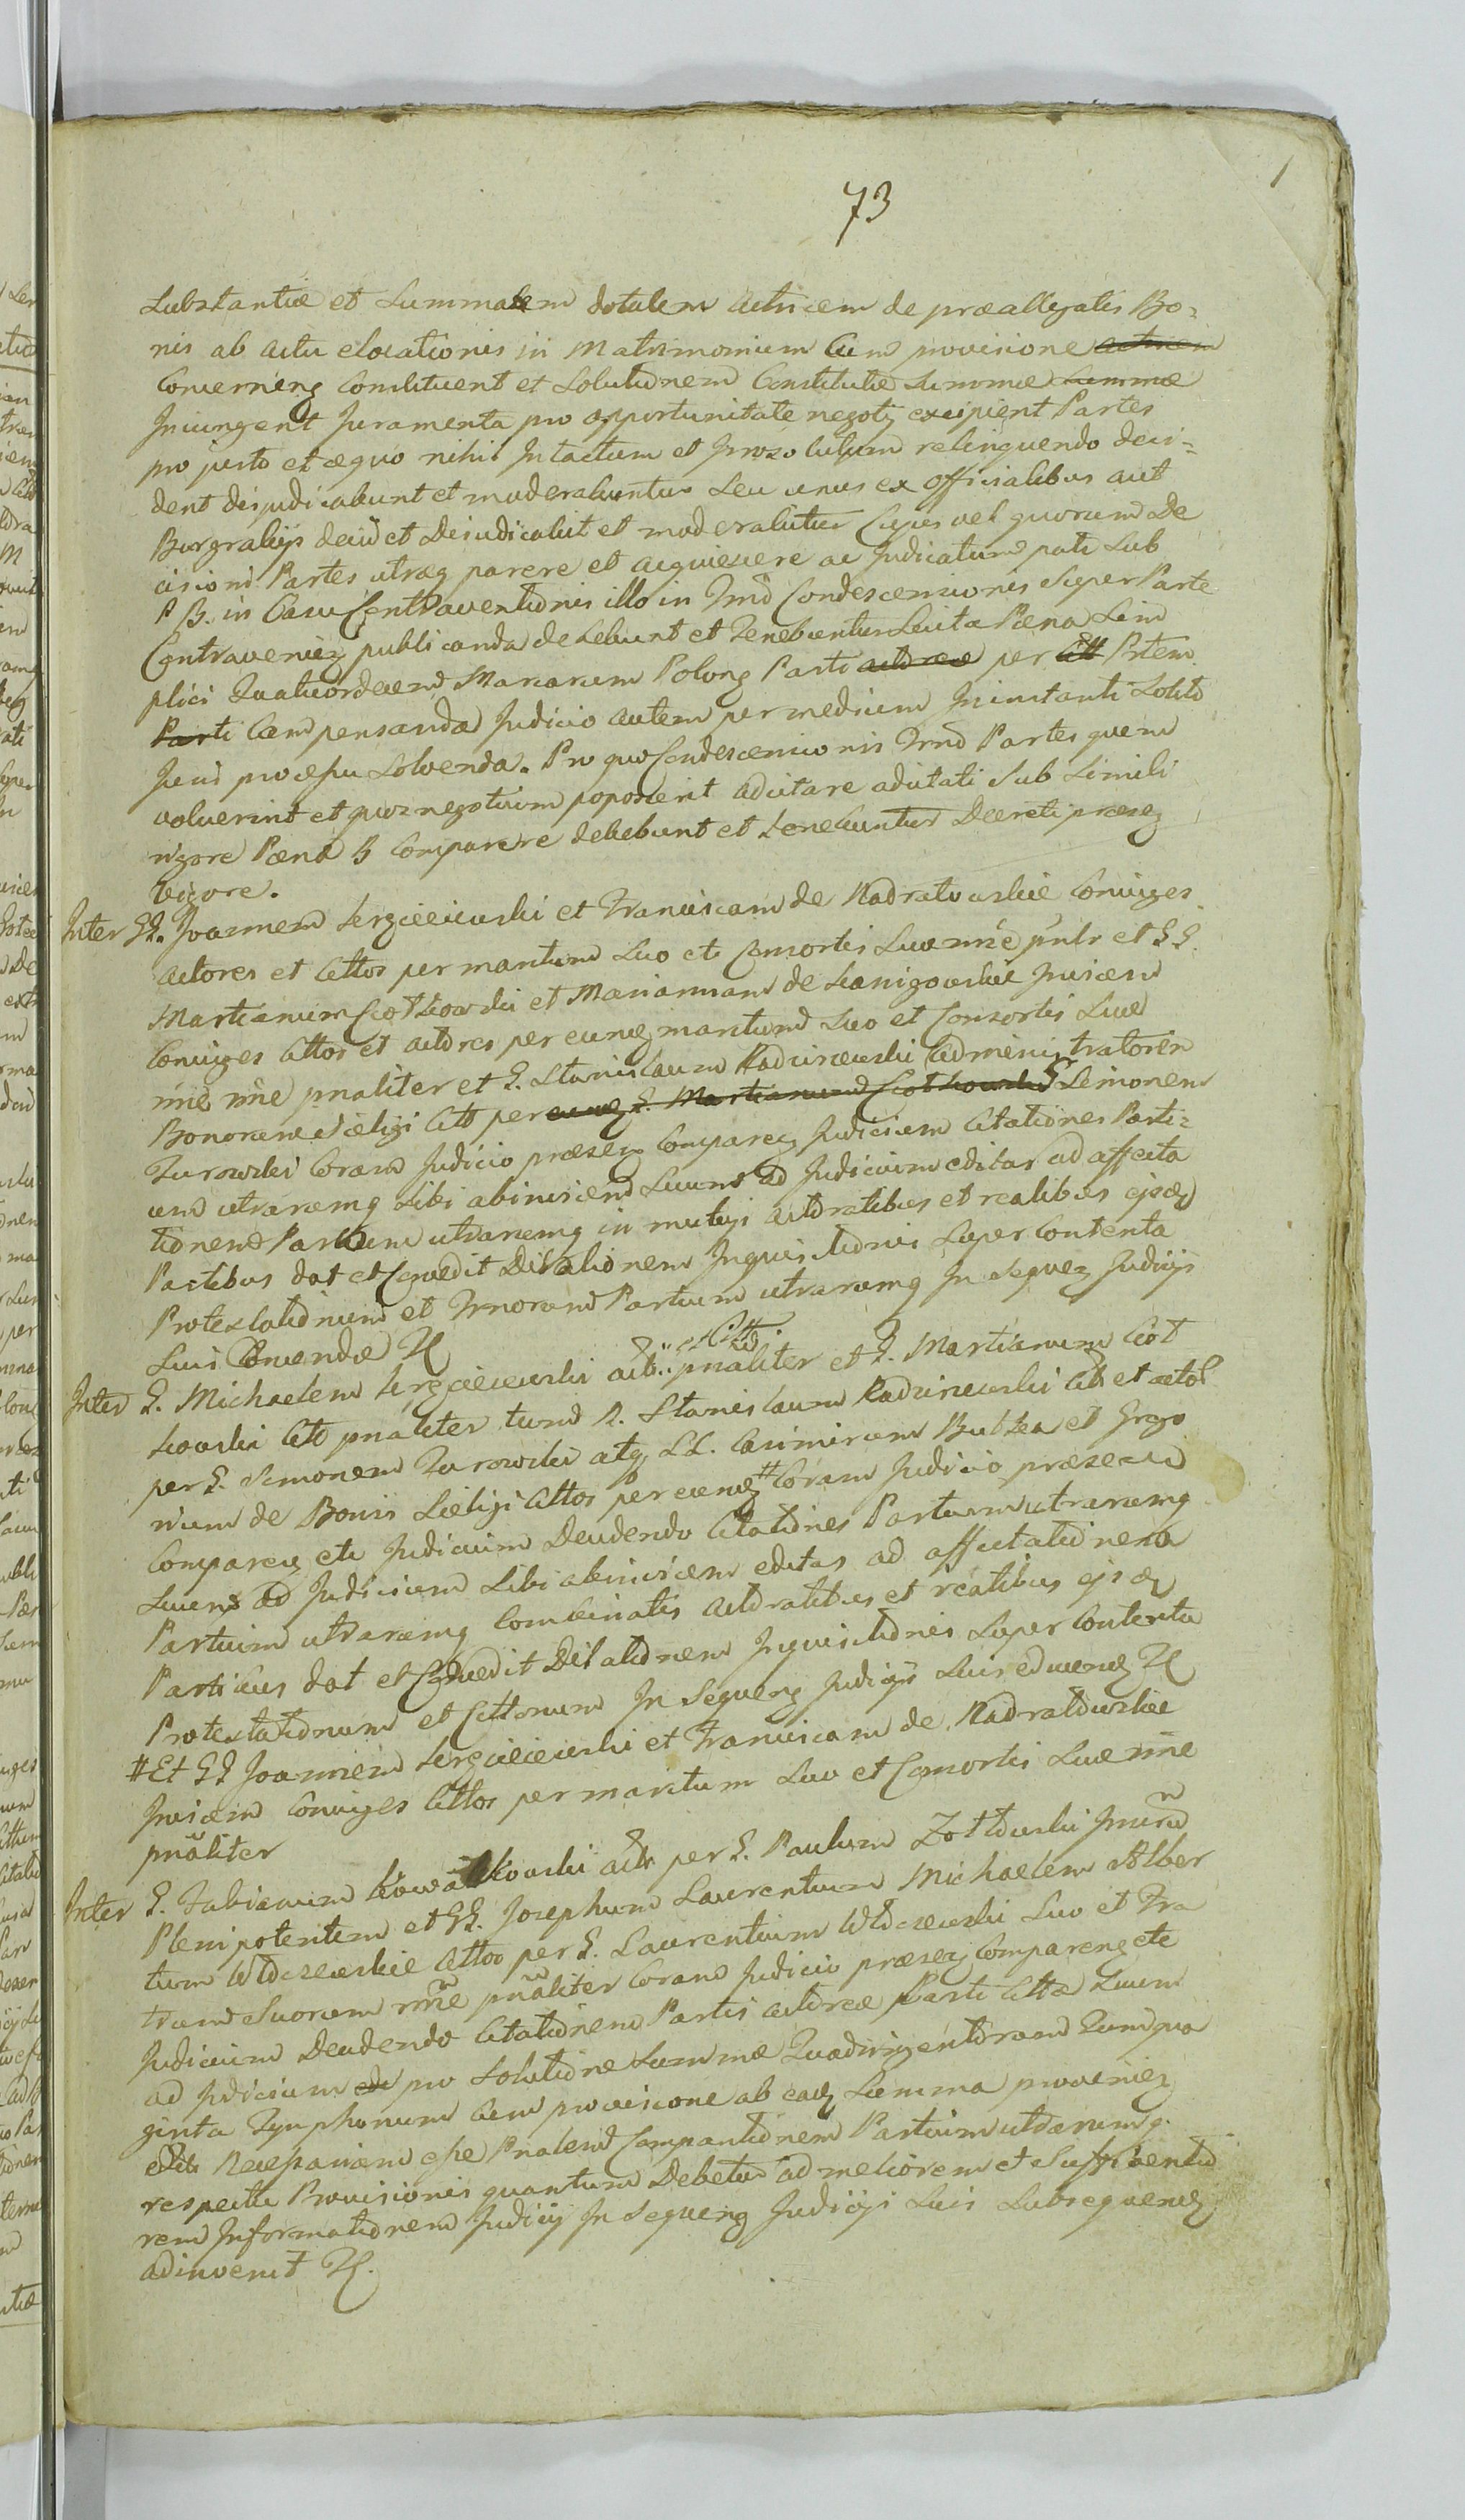 1
73
Substantiæ et Summatem dotalem actricem de præallegatis Bo-
nis ab actu elocationis in Matrimonium Cum provisione actricem
Concerneng constituent et Solutionem Constitutæ Summæ Summæ
Injungent Juramenta pro opportunitate negotij excipient Partes
pro justo et æquo nihil Intactum et Irresolutum relinquendo deci-
dent dijudicabunt et moderabuntur Seu unus ex Officialibus aut
Burgrabijs decidet Dejudicabit et moderabitur Cujus vel quorum De
cisioni Partes utræq parere et acquiescere ac Judicatum pati Sub
P B. in Casu Contraventionis illo in Tmo Condescensionis Super Parte
Contravenieņ publicanda debebunt et Tenebuntur Sub Pæna Sim
plici Quatuordecem Marcarum Polong Parti actoreæ per Citt Ptem
Parti Compensanda Judicio autem per medium In instanti Solito
Juris processu Solvenda. Pro quo Condescensionis Tmo Partes quem
voluerint et quos negotium poposcerit adcitare adcitati Sub Simili
rigore Pæna B Comparere debebunt et tenebuntur Decreti præseņ
vigore.
Inter GG. Joannem Sergieiewski et Franciscam de Nadratowskie Conjuges
actores et Cittos per maritum Suo et Consortis Suæ nnie pnlr et GG.
Martianum Czotkowski et Mariannam de Stanigowskie Invicem
Conjuges Cittos et actores per eunq maritum Suo et Consortis Suæ
nnie pnaliter et G. Stanislaum Radziszewski Administratorem
Bonorum Sieligi Citt per eunq G. Martianum Czotkowski G. Simonem
Zurowski Coram Judicio præseņ Compareņ Judicium Citationes Parti-
um utrarumq Sibi abinvicem Suum ad Judicium editas ad affecta
tionem Partium utrarumq in mutuis actoratibus et reatibus ejsdq
Partibus dat et Concedit Dilationem Inquisitionis Super Contenta
Protestationum et Tmorum Partium utrarumq In Sequeņ Judicijs
Suis Educenda &
Inter G. Michaelem Sergieiewski act. et Citt pnaliter et G. Martianum Czot
kowski Citt pnaliter tum G. Stanislaum Radziszewski Citt et act
per G. Simonem Zurowski atq LL. Casimirum Bubka et Grego
rium de Bonis Sieligi Cittos per eunq # Coram Judicio præseņ
Compareņ etc Judicium Decidendo Citationes Partium utrarumq
Suum ad Judicium Sibi abinvicem editas ad affectationem
Partium utrarumq Combinatis actoratibus et reatibus ejsdq
Partibus dat et Concedit Dilationem Inquisitionis Super Contenta
Protestationum et Cittonum In Sequeng Judicijs Suis educenq &
# Et GG Joannem Sergieiewski et Franciscam de Nadratowskie
Invicem Conjuges Cittos per maritum Suo et Consortis Suæ nnie
pnaliter
Inter G. Fabianum Kowalkowski actr per G. Paulum Zottowski Juratū
Plenipotentem et GG. Josephum Laurentium Michaelem Alber
tum Wloszewskie Cittos per G. Laurentium Wloszewski Suo et Fra
trum Suorum nnie pnaliter Coram Judicio præseņ Compareng etc
Judicium Decidendo Citationem Partis actoreæ Parti Cittæ Suum
ad Judicium edi pro Solutione Summæ Quadringentorum Quinqua
ginta Tynphonum Cum provisione ab eadq Summa provenieņ
editi Necessariam esse Pnalem Comparitionem Partium utrarumq
respectu Provisionis quantum Debetur ad meliorem et Sufficientio
rem Informationem Judicij In Sequeng Judicijs Suis Subsequenq
adinvenit &.